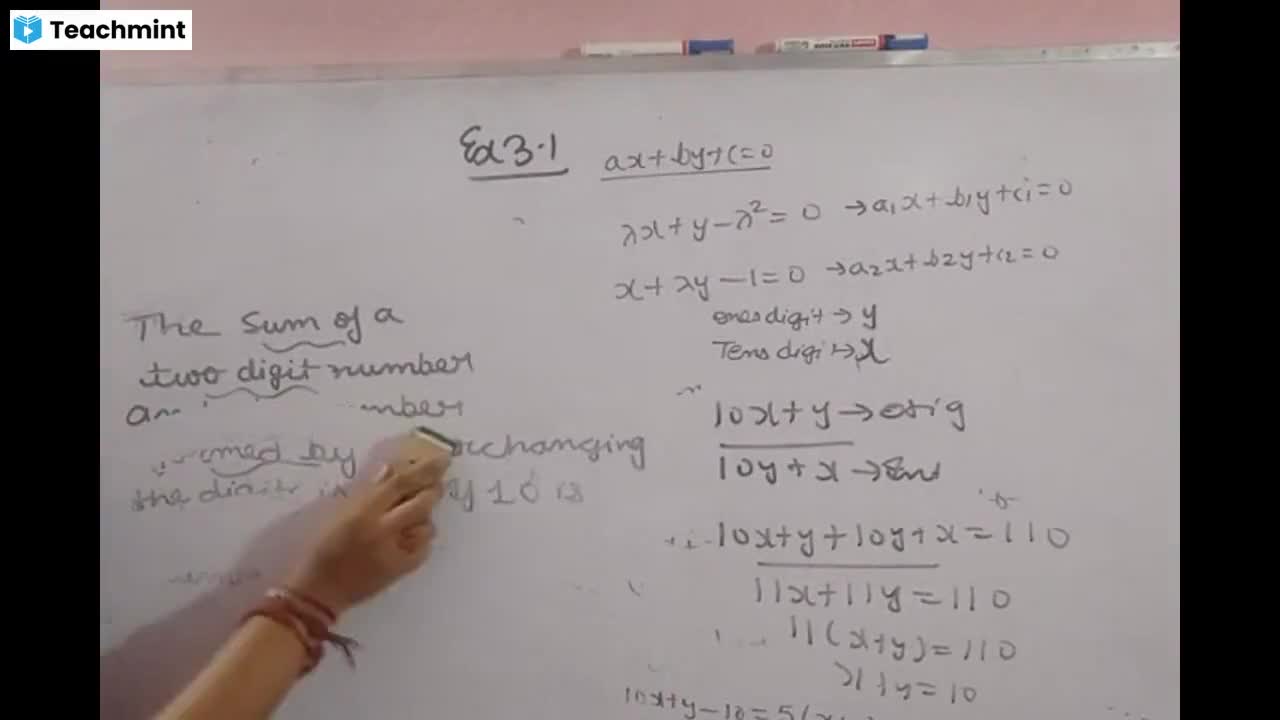 Teachmint
Ex 3.1
ax+by+c=0
λx+y-λ²=0 →a₁x+b₁y+c₁=0
x+λy-1=0 →a₂x+b₂y+c₂=0
ones digit→ y
Tens digit→ x
The sum of a
two digit number
by changing
the digits 10 is
10x+y→orig
10y+x→
10x+y+10y+x=110
11x+11y=110
11(x+y)=110
x+y=10
10x+y-10=5(x